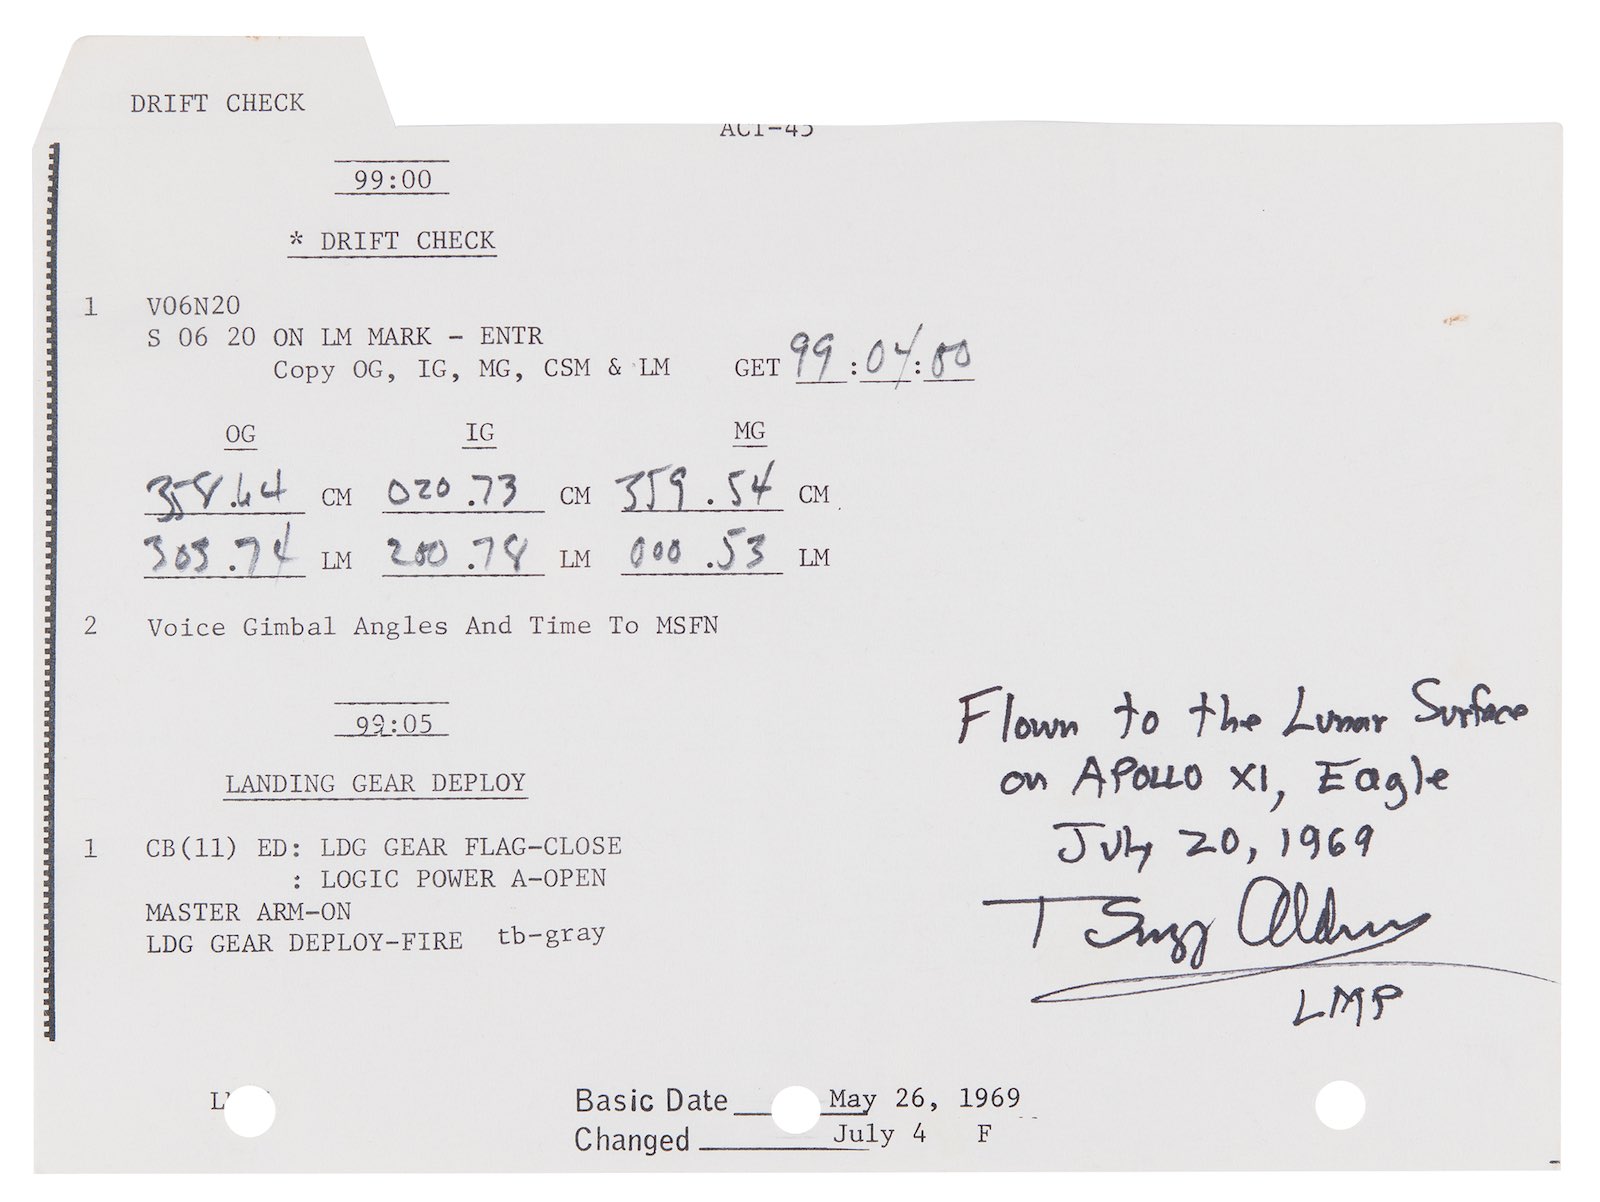 DRIFT CHECK
ACT-45
99:00
* DRIFT CHECK
1 V06N20
S 06 20 ON LM MARK - ENTR
Copy OG, IG, MG, CSM & LM GET 99:04:00
OG IG MG
358.64 CM 020.73 CM 359.54 CM
303.74 LM 200.78 LM 000.53 LM
2 Voice Gimbal Angles And Time To MSFN
99:05
LANDING GEAR DEPLOY
1 CB(11) ED: LDG GEAR FLAG-CLOSE
: LOGIC POWER A-OPEN
MASTER ARM-ON
LDG GEAR DEPLOY-FIRE tb-gray
Flown to the Lunar Surface
on APOLLO XI, Eagle
July 20, 1969
Buzz Aldrin
LMP
Basic Date May 26, 1969
Changed July 4 F